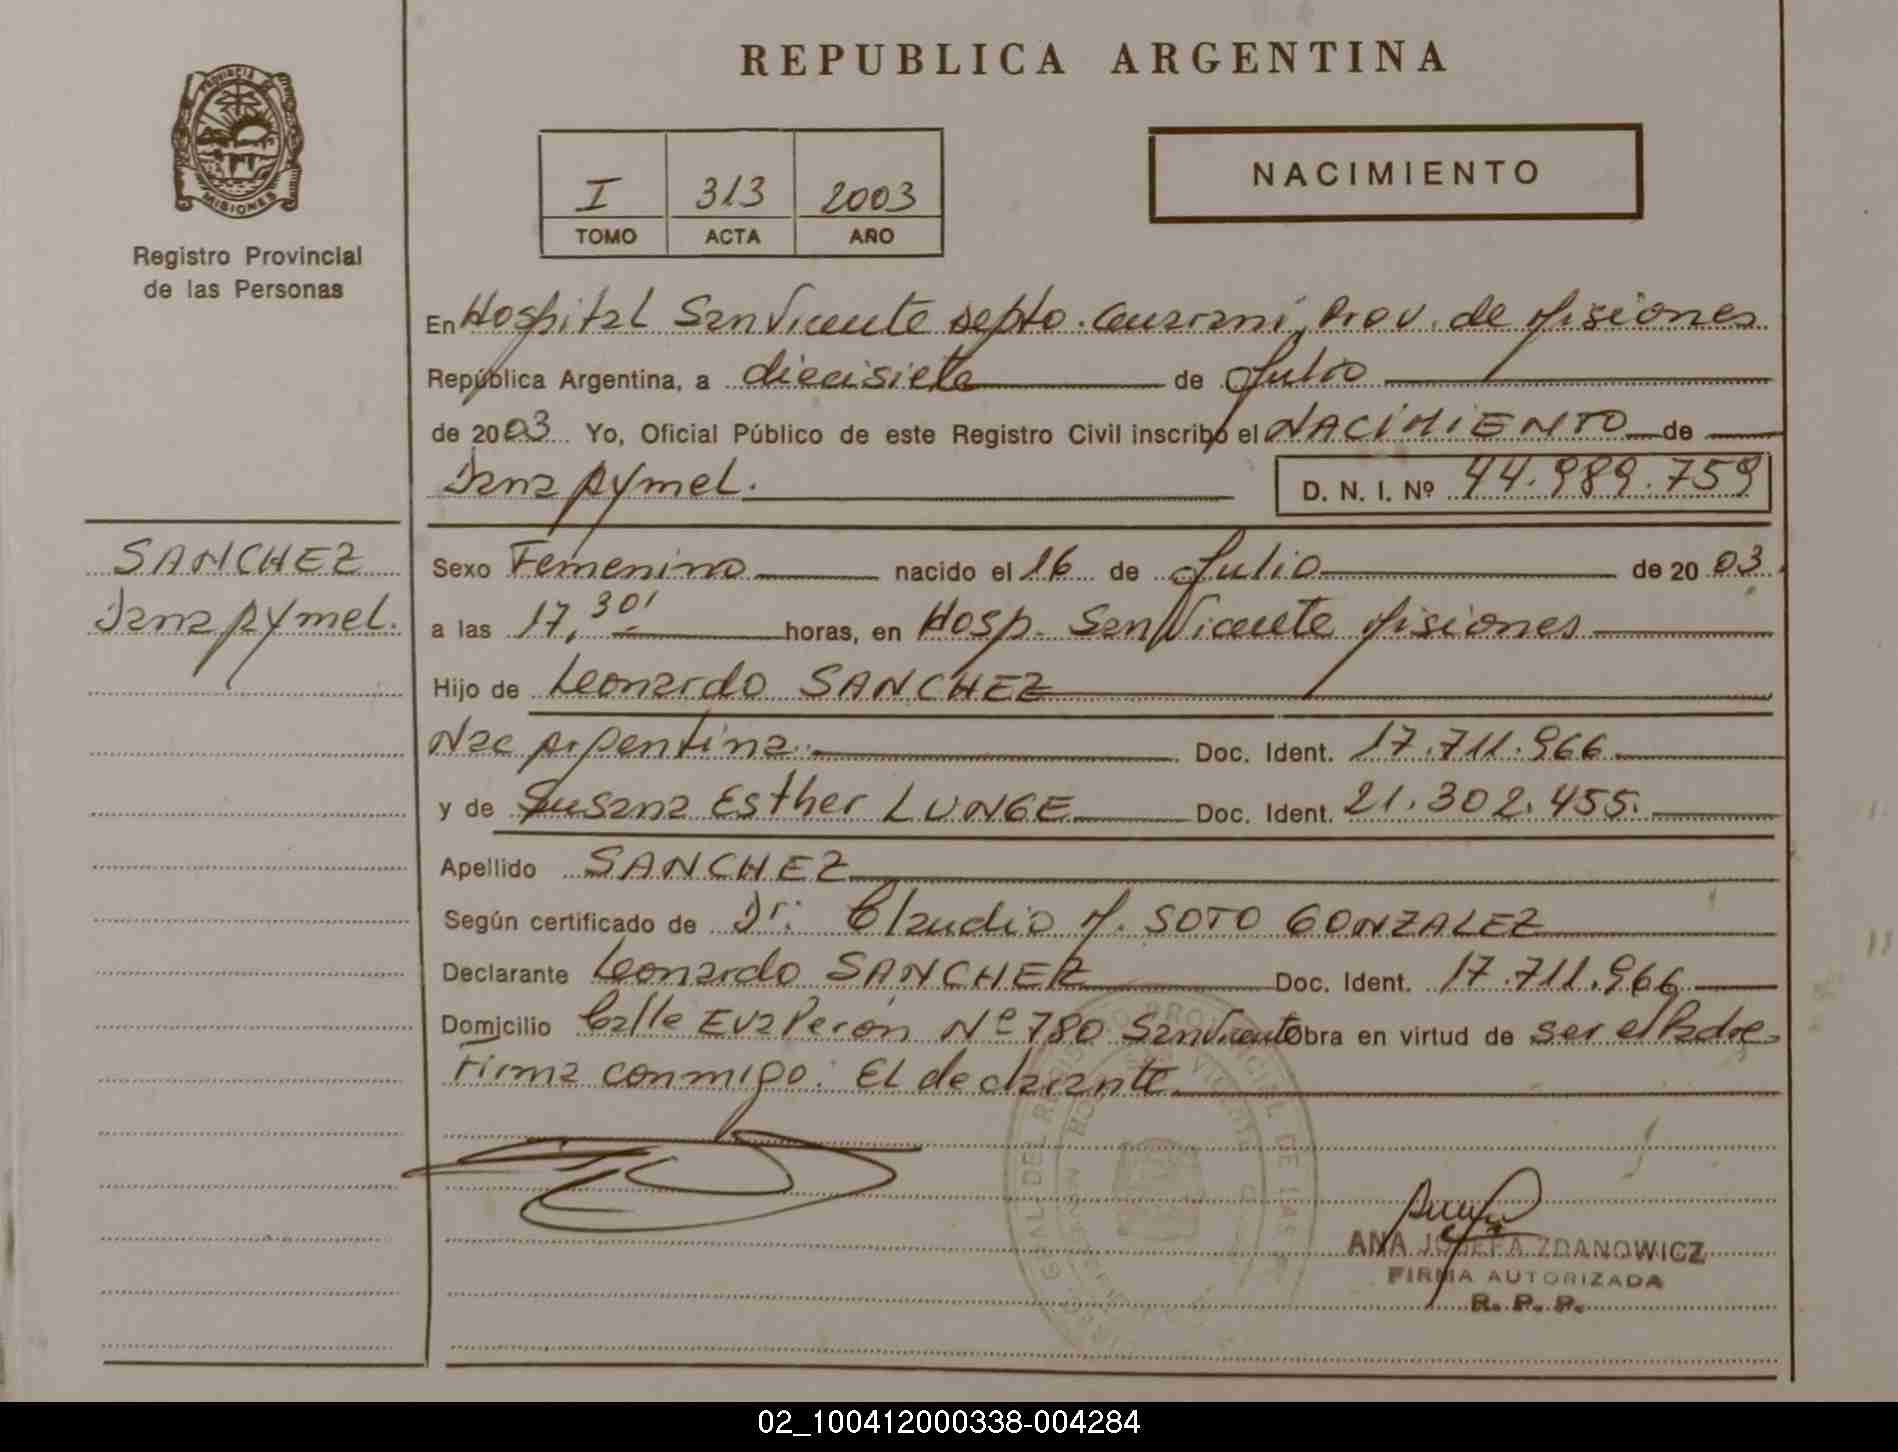 REPUBLICA ARGENTINA
PROVINCIA DE
MISIONES
Registro Provincial
de las Personas
I 313 2003
TOMO ACTA AÑO
NACIMIENTO
En Hospital San Vicente Depto. Guarani, Prov. de Misiones
República Argentina, a diecisiete de Julio
de 2003 Yo, Oficial Público de este Registro Civil inscribo el NACIMIENTO de
Dana Aymel.
D. N. I. Nº 44.989.759
SANCHEZ
Dana Aymel.
Sexo Femenino nacido el 16 de Julio de 2003
a las 17,30' horas, en Hosp. San Vicente Misiones
Hijo de Leonardo SANCHEZ
Nac Argentina. Doc. Ident. 17.711.966
y de Susana Esther LUNGE Doc. Ident. 21.302.455.
Apellido SANCHEZ
Según certificado de Dr: Claudio M. SOTO GONZALEZ
Declarante Leonardo SANCHEZ Doc. Ident. 17.711.966
Domicilio Calle Eva Perón Nº 780 San Vicente Obra en virtud de ser el Padre
Firma conmigo: El declarante
ANA JOSEFA ZDANOWICZ
FIRMA AUTORIZADA
R. P. P.
02_100412000338-004284